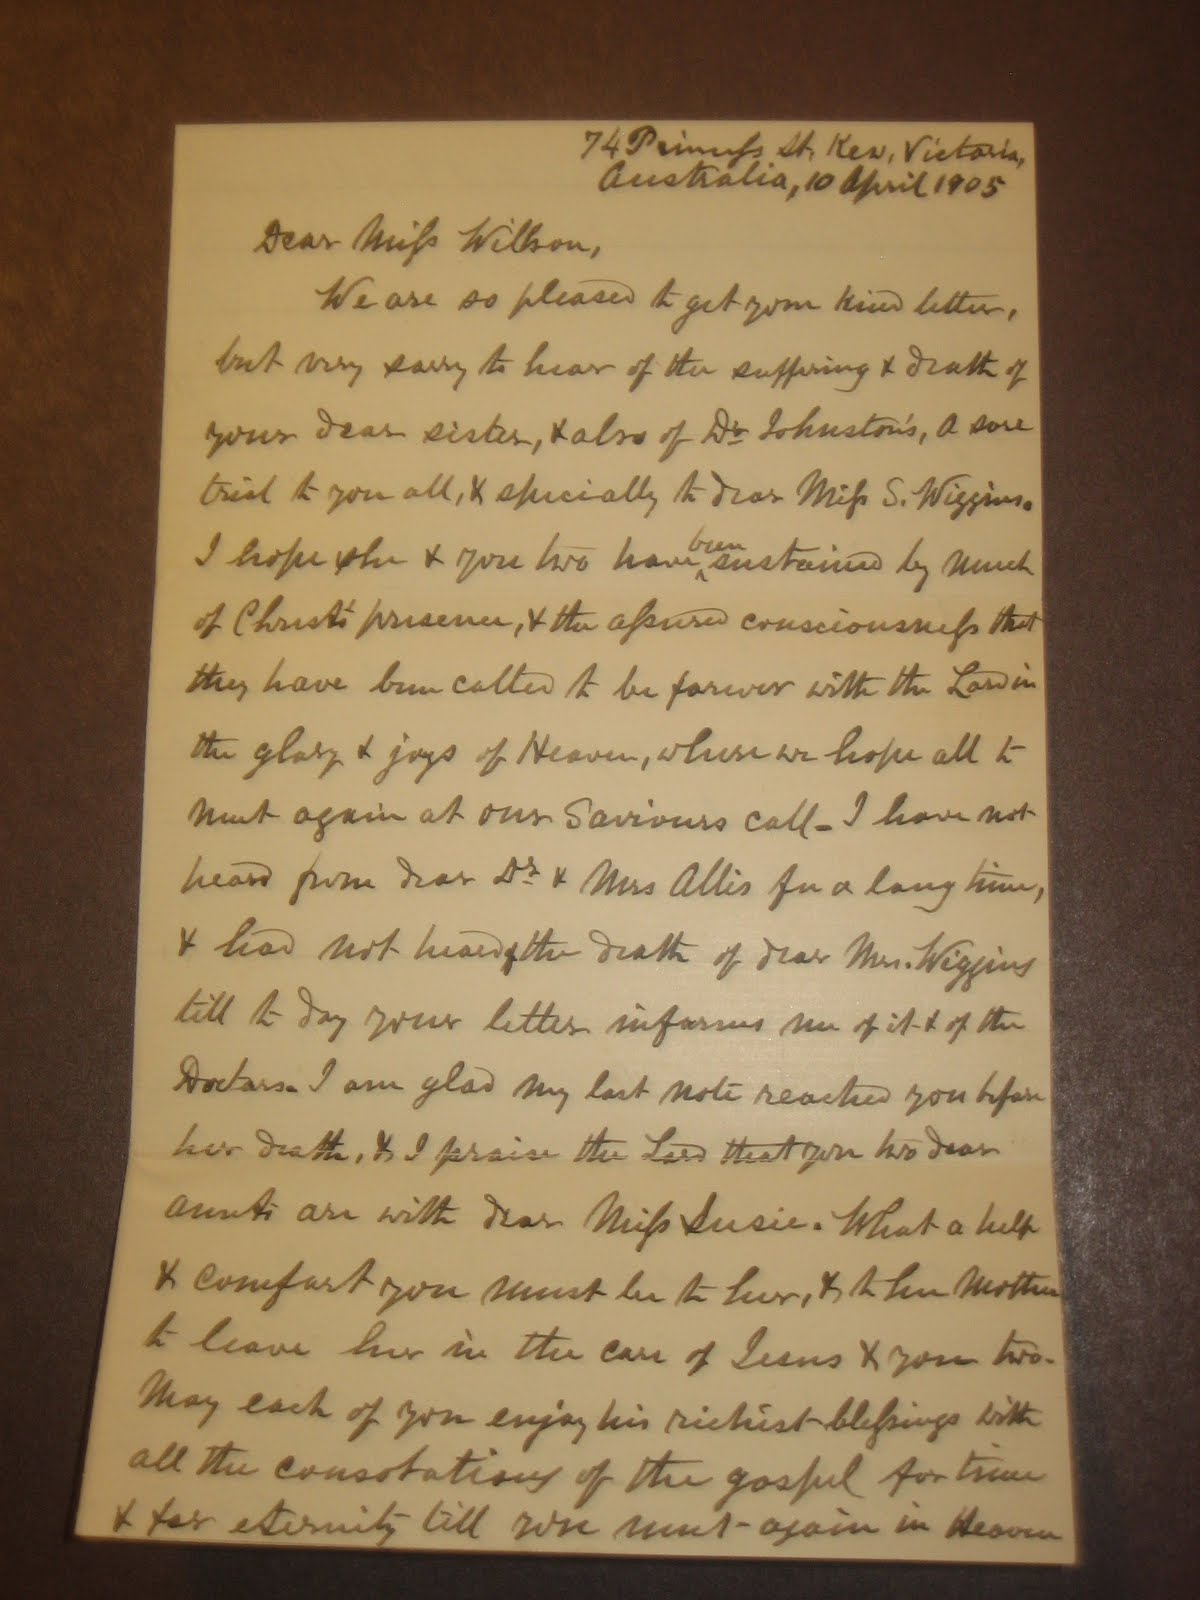 74 Princess St, Kew, Victoria,
Australia, 10 April 1905
Dear Miss Willson,
We are so pleased to get your kind letter,
but very sorry to hear of the suffering & death of
your dear sister, & also of Dr Johnston's, a sore
trial to you all, & specially to dear Miss S. Wiggins.
I hope she & you two have been sustained by much
of Christ's presence, & the assured consciousness that
they have been called to be forever with the Lord in
the glory & joys of Heaven, where we hope all to
meet again at our Saviours call - I have not
heard from dear Dr & Mrs Allis for a long time,
& had not heard of the death of dear Mrs. Wiggins
till to day your letter informs me of it & of the
Doctors. I am glad my last note reached you before
her death, & I praise the Lord that you two dear
aunts are with dear Miss Susie. What a help
& comfort you must be to her, & to her Mother
to leave her in the care of Jesus & you two.
May each of you enjoy his richest blessings with
all the consolations of the gospel for time
& for eternity till you meet again in Heaven